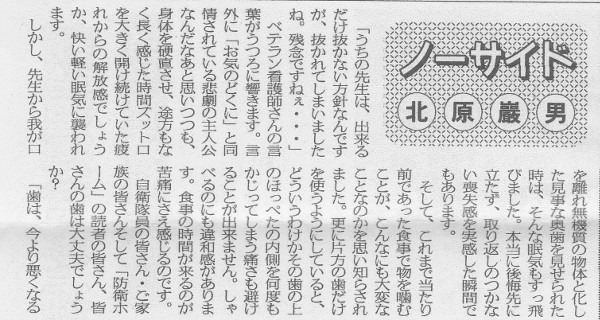 ノーサイド
北原巖男
「うちの先生は、出来る
だけ抜かない方針なんです
が、抜かれてしまいました
ね。残念ですねぇ・・・」
ベテラン看護師さんの言
葉がうつろに響きます。言
外に「お気のどくに」と同
情されている悲劇の主人公
なんだなあと思いつつも、
身体を硬直させ、途方もな
く長く感じた時間ズット口
を大きく開け続けていた疲
れからの解放感でしょう
か、快い軽い眠気に襲われ
ます。
しかし、先生から我が口
を離れ無機質の物体と化し
た見事な奥歯を見せられた
時は、そんな眠気もすっ飛
びました。本当に後悔先に
立たず、取り返しのつかな
い喪失感を実感した瞬間で
もあります。
そして、これまで当たり
前であった食事で物を噛む
ことが、こんなにも大変な
ことなのかを思い知らされ
ました。更に片方の歯だけ
を使うようにしていると、
どういうわけかその歯の上
のほっぺたの内側を何度も
かじってしまう痛さも避け
ることが出来ません。しゃ
べるのにも違和感がありま
す。食事の時間が来るのが
苦痛にさえ感じるのです。
自衛隊員の皆さん・ご家
族の皆さんそして「防衛ホ
ーム」の読者の皆さん、皆
さんの歯は大丈夫でしょう
か？
「歯は、今より悪くなる